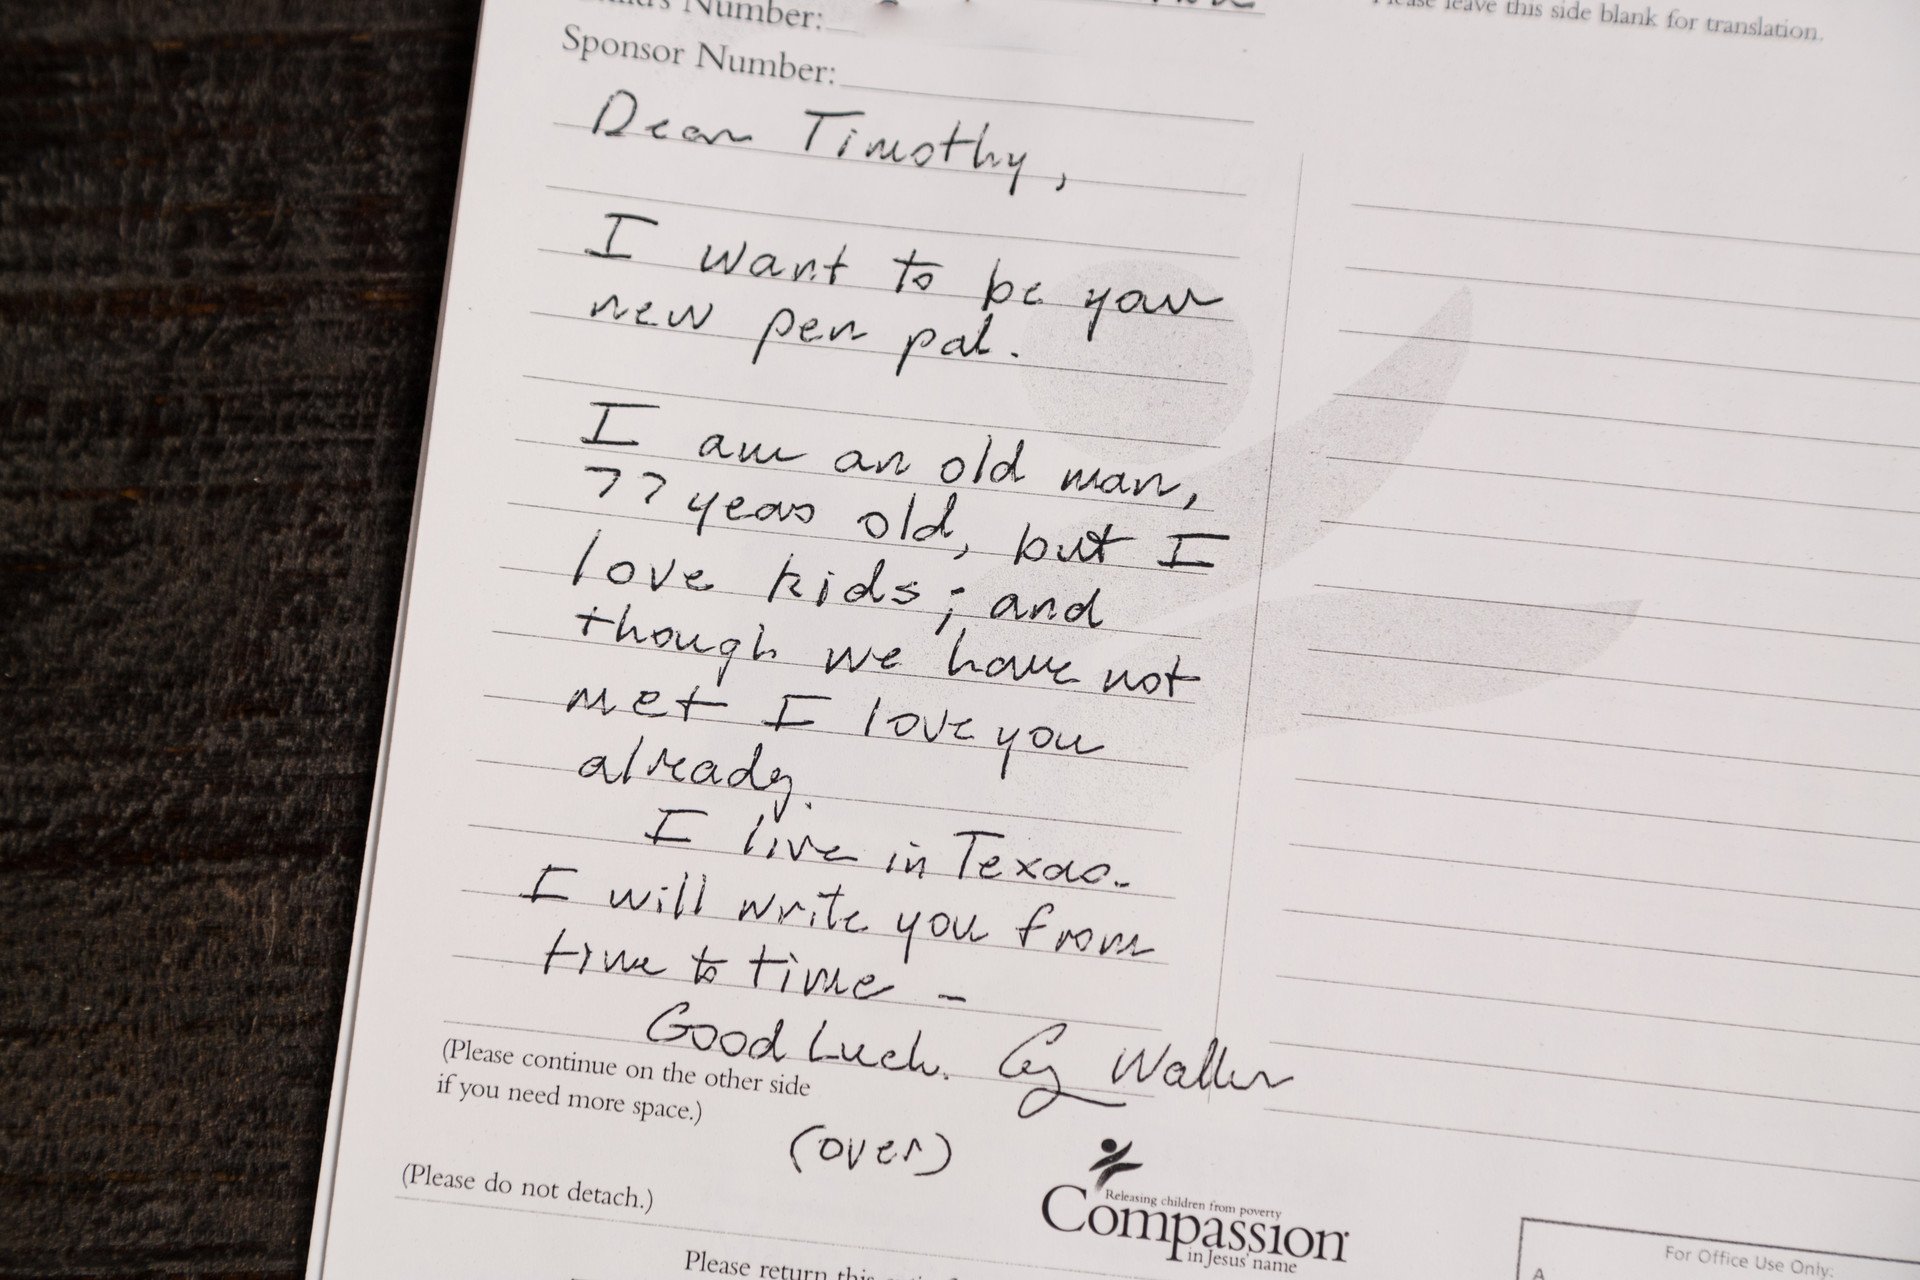 Number:
Please leave this side blank for translation.
Sponsor Number:
Dear Timothy,
I want to be your
new pen pal.
I am an old man,
77 years old, but I
love kids; and
though we have not
met I love you
already.
I live in Texas.
I will write you from
time to time -
Good Luck. Waller
(Please continue on the other side
if you need more space.)
(over)
(Please do not detach.)
Releasing children from poverty
Compassion
in Jesus' name
Please return this
For Office Use Only:
A